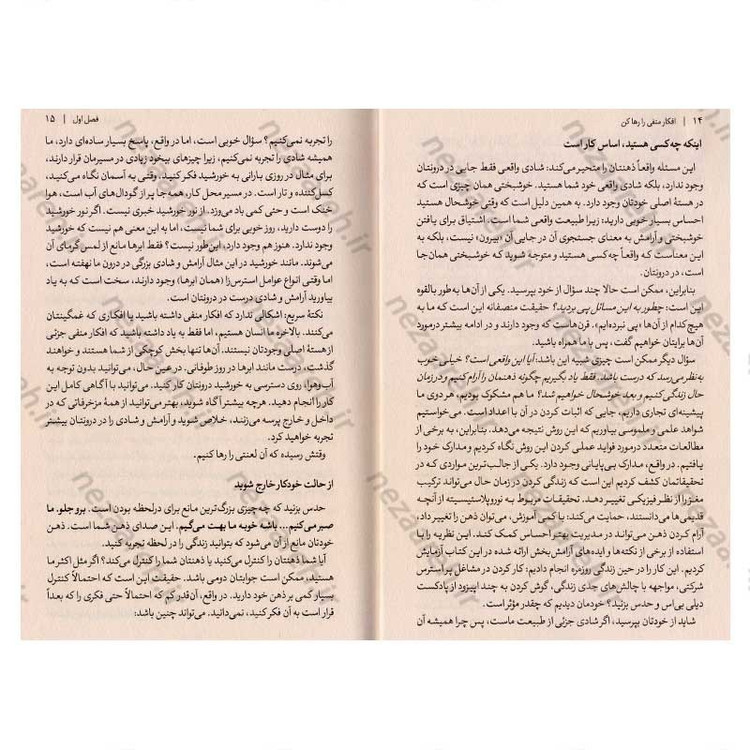 ۱۴ | افکار منفی را رها کن
اینکه چه‌کسی هستید، اساس کار است
این مسئله واقعاً ذهنتان را متحیر می‌کند: شادی واقعی فقط جایی در درونتان
وجود ندارد، بلکه شادی واقعی خود شما هستید. خوشبختی همان چیزی است که
در هستهٔ اصلی خودتان وجود دارد. به همین دلیل است که وقتی خوشحال هستید
احساس بسیار خوبی دارید؛ زیرا طبیعت واقعی شما است. اشتیاق برای یافتن
خوشبختی و آرامش به معنای جستجوی آن در جایی آن «بیرون» نیست، بلکه به
این معناست که واقعاً چه‌کسی هستید و متوجه شوید که خوشبختی همان‌جا
است، در درونتان.
بنابراین، ممکن است حالا چند سؤال از خود بپرسید. یکی از آن‌ها به‌طور بالقوه
این است: چطور به این مسائل پی بردید؟ حقیقت منصفانه این است که ما به
هیچ‌کدام از آن‌ها «پی نبرده‌ایم». قرن‌هاست که وجود دارند و در ادامه بیشتر درمورد
آن‌ها برایتان خواهیم گفت، پس با ما همراه باشید.
سؤال دیگر ممکن است چیزی شبیه این باشد: آیا این واقعی است؟ خیلی خوب
به‌نظر می‌رسد که درست باشد. فقط یاد بگیریم چگونه ذهنمان را آرام کنیم و در زمان
حال زندگی کنیم و بعد خوشحال خواهیم شد؟ ما هم مشکوک بودیم، هر دوی ما
پیشینه‌ای تجاری داریم، جایی که اثبات کردن در آن با اعداد است. می‌خواستیم
شواهد علمی و ملموسی بیاوریم که این روش نتیجه می‌دهد. بنابراین، به برخی از
مطالعات متعدد درمورد فواید عملی کردن این روش نگاه کردیم و مدارک خود را
یافتیم. در واقع، مدارک بی‌پایانی وجود دارد. یکی از جالب‌ترین مواردی که در
تحقیقاتمان کشف کردیم این است که زندگی کردن در زمان حال می‌تواند ترکیب
مغز را از نظر فیزیکی تغییر دهد. تحقیقات مربوط به نوروپلاستیسیته از آنچه
قدیمی‌ها می‌دانستند، حمایت می‌کند: با کمی آموزش، می‌توان ذهن را تغییر داد.
آرام کردن ذهن می‌تواند در مدیریت بهتر احساس کمک کند. این نظریه را با
استفاده از برخی از نکته‌ها و ایده‌های آرامش‌بخش ارائه شده در این کتاب آزمایش
کردیم. این کار را در حین زندگی روزمره انجام دادیم: کار کردن در مشاغل پراسترس
شرکتی، مواجهه با چالش‌های جدی زندگی، گوش کردن به چند اپیزود از پادکست
دیلی بی‌اس و حدس بزنید؟ خودمان دیدیم که چقدر مؤثر است.
شاید از خودتان بپرسید، اگر شادی جزئی از طبیعت ماست، پس چرا همیشه آن
فصل اول | ۱۵
را تجربه نمی‌کنیم؟ سؤال خوبی است، اما در واقع، پاسخ بسیار ساده‌ای دارد، ما
همیشه شادی را تجربه نمی‌کنیم، زیرا چیزهای بیخود زیادی در مسیرمان قرار دارند،
برای مثال در روزی بارانی به خورشید فکر کنید. وقتی به آسمان نگاه می‌کنید،
کسل‌کننده و تار است. در مسیر محل کار، همه‌جا پر از گودال‌های آب است، هوا
خنک است و حتی کمی باد می‌وزد. از نور خورشید خبری نیست. اگر نور خورشید
را دوست دارید، روز خوبی برای شما نیست، اما به این معنی هم نیست که خورشید
وجود ندارد. هنوز هم وجود دارد، این‌طور نیست؟ فقط ابرها مانع از لمس گرمای آن
می‌شوند. مانند خورشید در این مثال آرامش و شادی بزرگی در درون ما نهفته است،
اما وقتی انواع عوامل استرس‌زا (همان ابرها) وجود دارند، سخت است که به یاد
بیاورید آرامش و شادی درست در درونتان است.
نکتهٔ سریع: اشکالی ندارد که افکار منفی داشته باشید یا افکاری که غمگینتان
می‌کنند. بالاخره ما انسان هستیم، اما فقط به یاد داشته باشید که افکار منفی جزئی
از هستهٔ اصلی وجودتان نیستند. آن‌ها تنها بخش کوچکی از شما هستند و خواهند
گذشت، درست مانند ابرها در روز طوفانی. در عین حال، می‌توانید بدون توجه به
آب‌وهوا، روی دسترسی به خورشید درونتان کار کنید. می‌توانید با آگاهی کامل این
کار را انجام دهید. هرچه بیشتر آگاه شوید، بهتر می‌توانید از همهٔ مزخرفاتی که در
داخل و خارج پرسه می‌زنند، خلاص شوید و آرامش و شادی را در درونتان بیشتر
تجربه خواهید کرد.
وقتش رسیده که آن لعنتی را رها کنیم.
از حالت خودکار خارج شوید
حدس بزنید که چه‌چیزی بزرگ‌ترین مانع برای درلحظه بودن است. برو جلو. ما
صبر می‌کنیم... باشه خوبه ما بهت می‌گیم. این صدای ذهن شما است. ذهن
خودتان مانع از آن می‌شود که بتوانید زندگی را در لحظه تجربه کنید.
آیا شما ذهنتان را کنترل می‌کنید یا ذهنتان شما را کنترل می‌کند؟ اگر مثل اکثر ما
هستید، ممکن است جوابتان دومی باشد. حقیقت این است که احتمالاً کنترل
بسیار کمی بر ذهن خود دارید. در واقع، آن‌قدر کم که احتمالاً حتی فکری را که بعداً
قرار است به آن فکر کنید، نمی‌دانید. می‌تواند چنین باشد:
nezaareh.ir